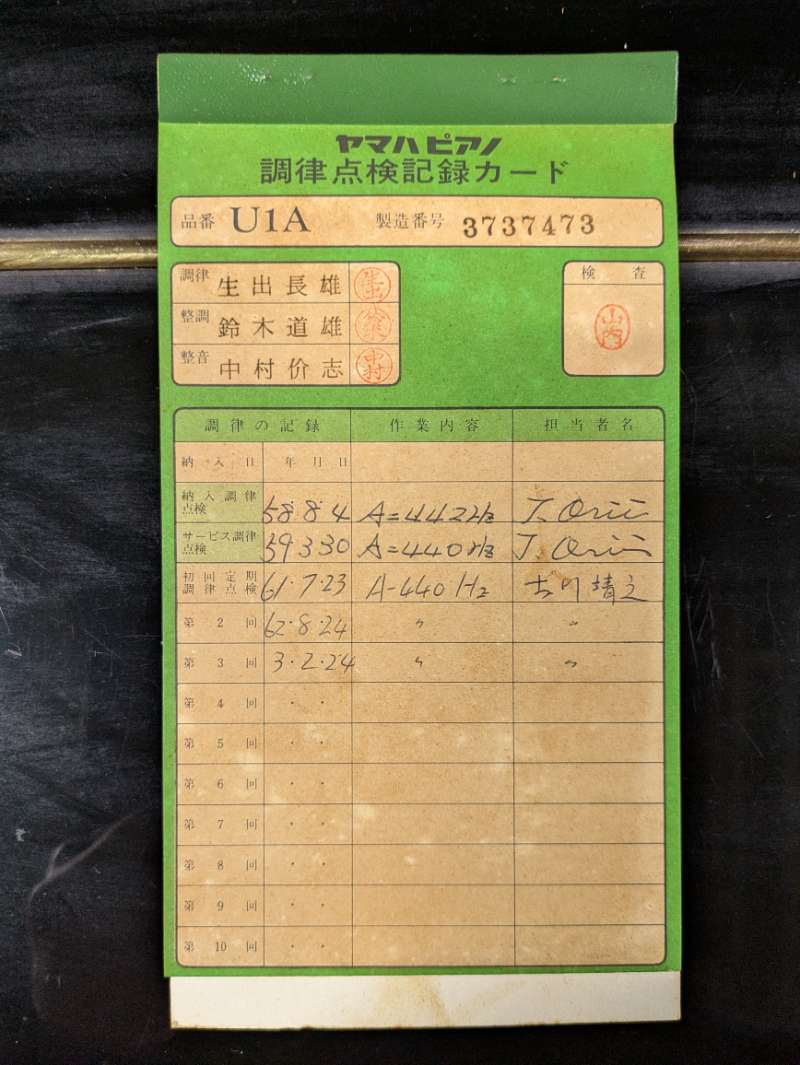 ヤマハピアノ
調律点検記録カード
品番 U1A 製造番号 3737473
調律 生出長雄
整調 鈴木道雄
整音 中村价志 中村
検査
山内
調律の記録 作業内容 担当者名
納入日 年月日
納入調律点検 58.8.4 A=442Hz J. Orii
サービス調律点検 59.3.30 A=440Hz J. Orii
初回定期調律点検 61.7.23 A-440Hz 古川靖之
第2回 62.8.24 〃 〃
第3回 3.2.24 〃 〃
第4回 . .
第5回 . .
第6回 . .
第7回 . .
第8回 . .
第9回 . .
第10回 . .